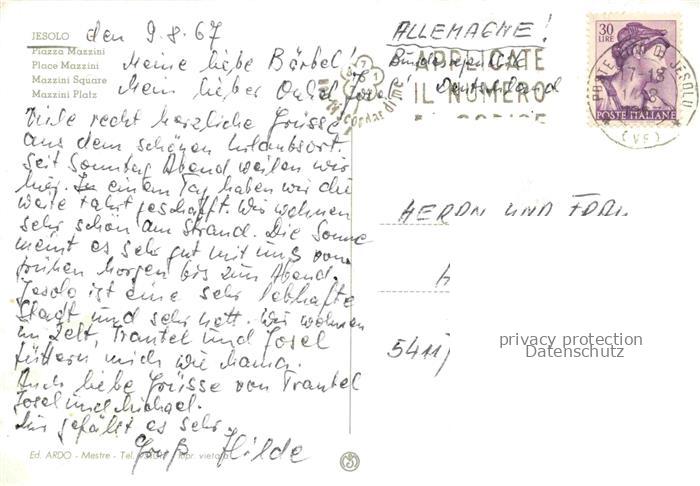 JESOLO den 9.8.67
Piazza Mazzini
Place Mazzini
Mazzini Square
Mazzini Platz
Meine liebe Bärbel!
Mein lieber Onkel Josef!
Viele recht herzliche Grüsse
aus dem schönen Urlaubsort.
Seit Sonntag Abend weilen wir
hier. In einem Tag haben wir die
weite Fahrt geschafft. Wir wohnen
sehr schön am Strand. Die Sonne
meint es sehr gut mit uns vom
frühen Morgen bis zum Abend.
Jesolo ist eine sehr lebhafte
Stadt und sehr nett. Wir wohnen
im Zelt, Trautel und Josef
füttern mich wie Mama.
Auch liebe Grüsse von Trautel
Josef und Michael.
Mir gefällt es sehr
Gruß Hilde
Ed. ARDO - Mestre - Tel.
vietata
ALLEMAGNE!
Bundesrepublik
Deutschland
APPLICATE
IL NUMERO
30
LIRE
POSTE ITALIANE
JESOLO
(VE)
HERRN UND FRAU
5411
privacy protection
Datenschutz